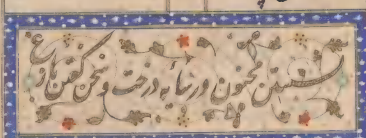 نشستن مجنون در سایه درخت و سخن گفتن با زاغ